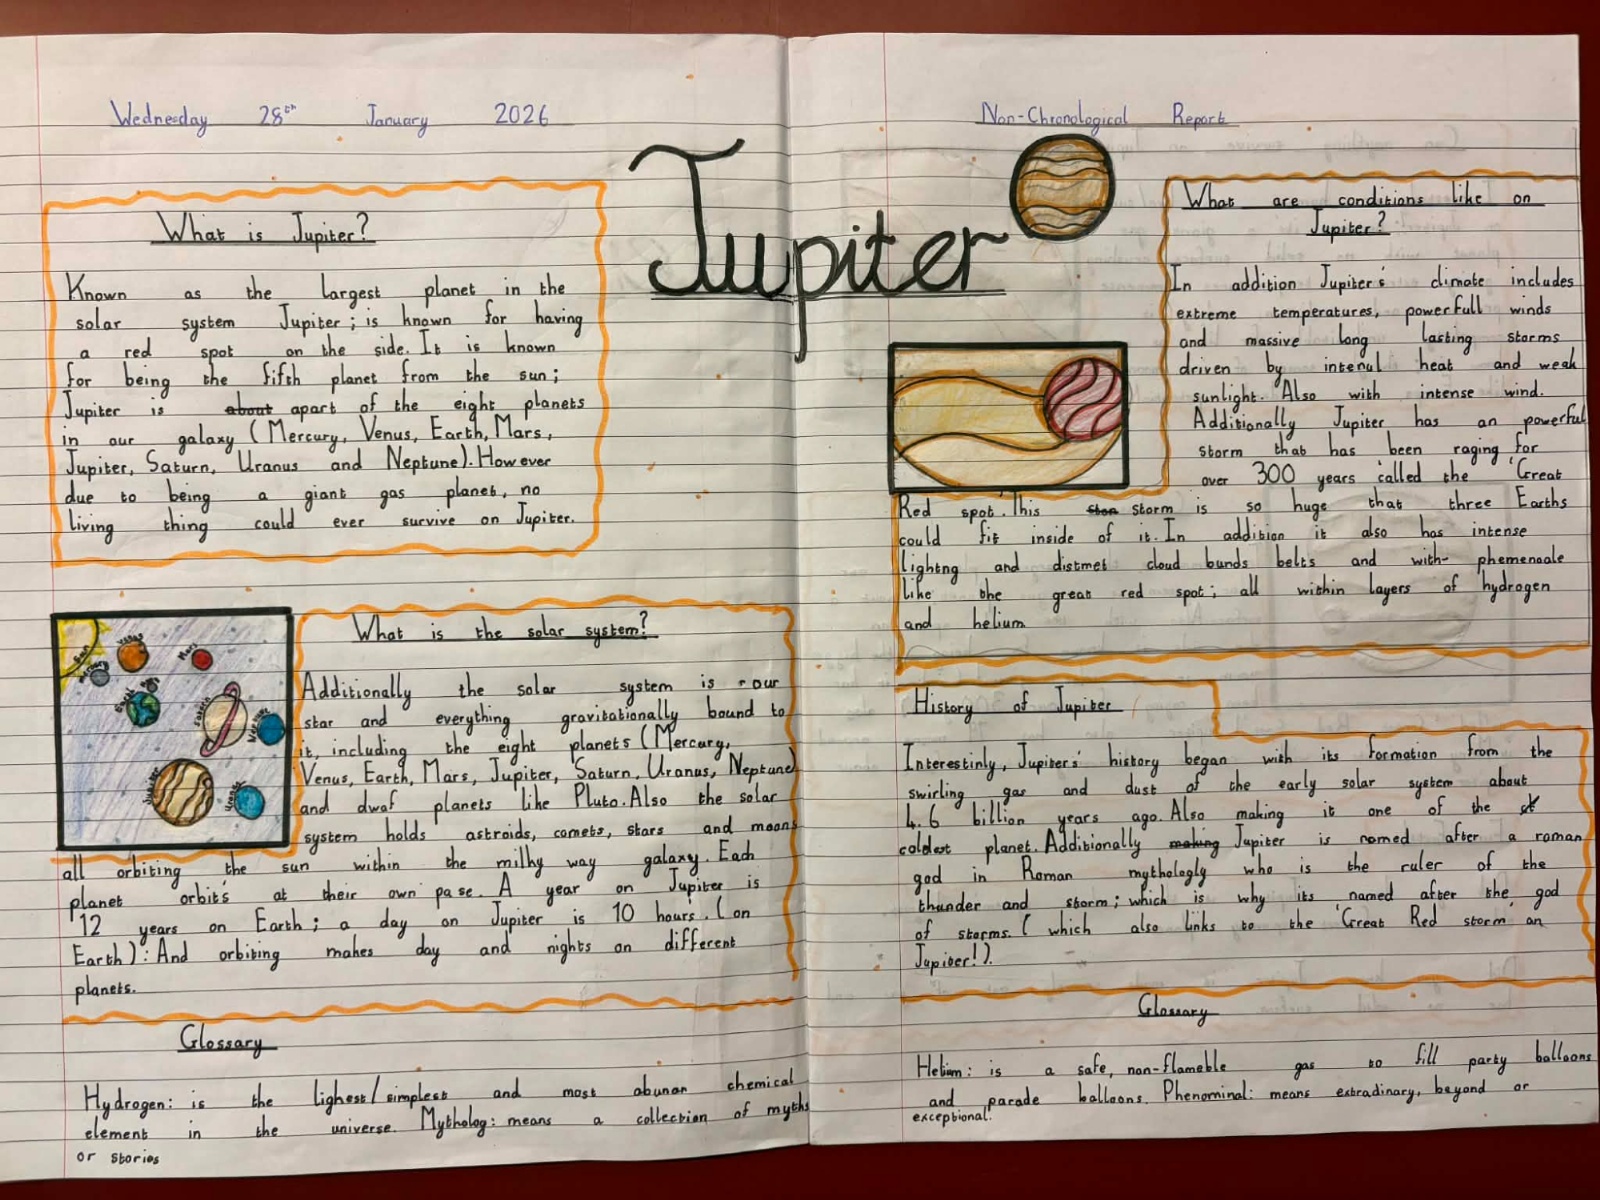 Wednesday 28th January 2026
Non-Chronological Report
Jupiter
What is Jupiter?
Known as the largest planet in the
solar system Jupiter; is known for having
a red spot on the side. It is known
for being the fifth planet from the sun;
Jupiter is about apart of the eight planets
in our galaxy (Mercury, Venus, Earth, Mars,
Jupiter, Saturn, Uranus and Neptune). However
due to being a giant gas planet, no
living thing could ever survive on Jupiter.
Sun
Mercury
Venus
Mars
Earth
Saturn
Neptune
Jupiter
Uranus
What is the solar system?
Additionally the solar system is our
star and everything gravitationally bound to
it, including the eight planets (Mercury,
Venus, Earth, Mars, Jupiter, Saturn, Uranus, Neptune)
and dwaf planets like Pluto. Also the solar
system holds astroids, comets, stars and moons
all orbiting the sun within the milky way galaxy. Each
planet orbit's at their own pase. A year on Jupiter is
12 years on Earth; a day on Jupiter is 10 hours. (on
Earth): And orbiting makes day and nights on different
planets.
Glossary
Hydrogen: is the lighest/simplest and most abunan chemical
element in the universe. Mytholog: means a collection of myths
or stories
What are conditions like on
Jupiter?
In addition Jupiter's climate includes
extreme temperatures, powerfull winds
and massive long lasting storms
driven by intenul heat and weak
sunlight. Also with intense wind.
Additionally Jupiter has an powerful
storm that has been raging for
over 300 years called the 'Great
Red spot'. This storm is so huge that three Earths
could fit inside of it. In addition it also has intense
lightng and distmet cloud bunds belts and with phemenoale
like the great red spot; all within layers of hydrogen
and helium
History of Jupiter
Interestinly, Jupiter's history began with its formation from the
swirling gas and dust of the early solar system about
4.6 billion years ago. Also making it one of the
coldest planet. Additionally making Jupiter is named after a roman
god in Roman mythologly who is the ruler of the
thunder and storm; which is why its named after the god
of storms. (which also links to the 'Great Red storm' on
Jupiter!).
Glossary
Helium: is a safe, non-flameble gas to fill party balloons
and parade balloons. Phenominal: means extradinary, beyand or
exceptional.